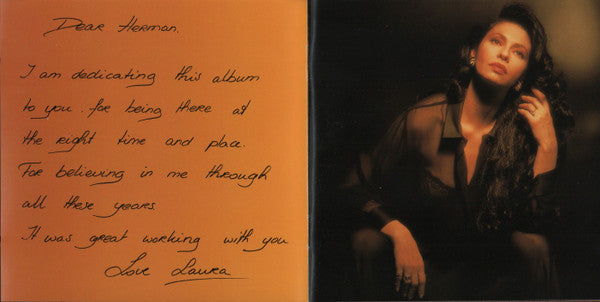 Dear Herman,
I am dedicating this album
to you for being there at
the right time and place.
For believing in me through
all these years.
It was great working with you
Love Laura